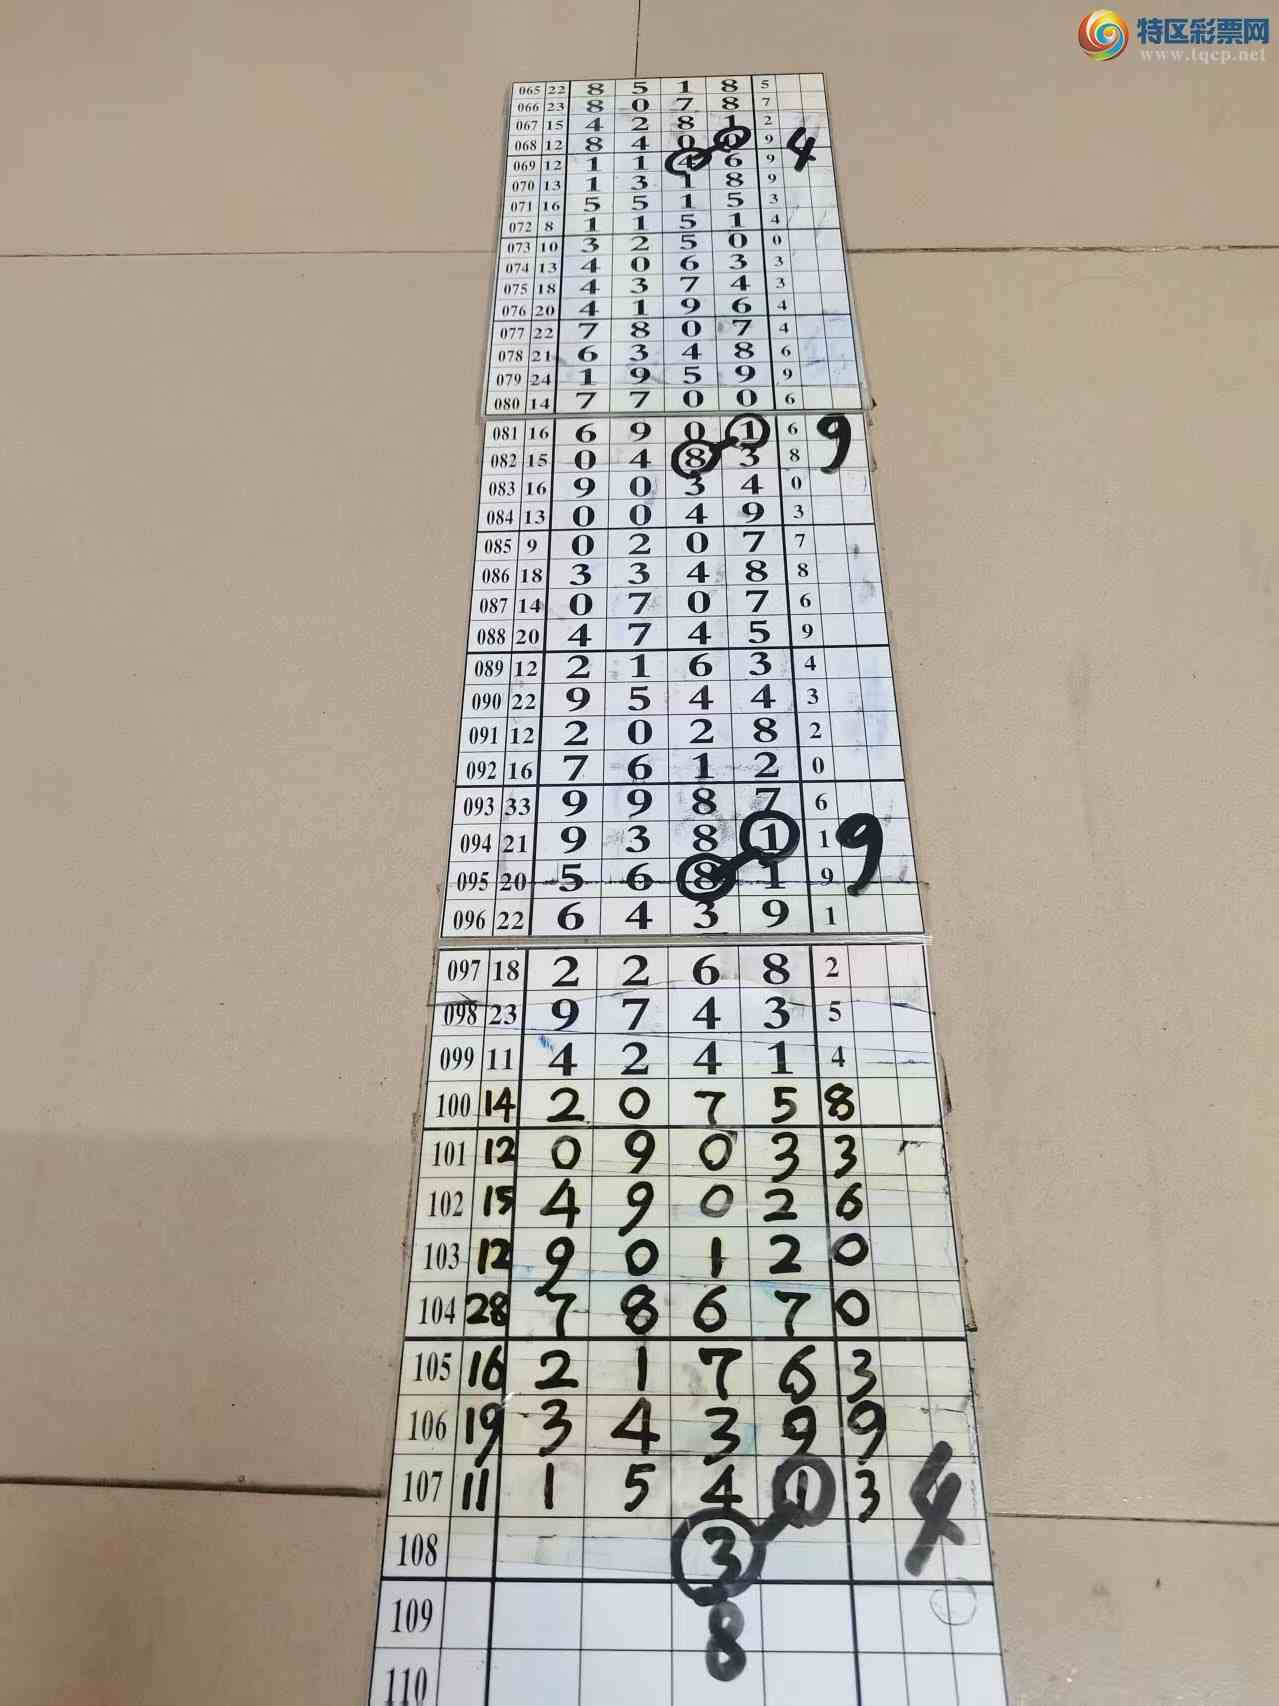 特区彩票网
www.tqcp.net
065 22 8 5 1 8 5
066 23 8 0 7 8 7
067 15 4 2 8 1 2
068 12 8 4 0 0 9 4
069 12 1 1 4 6 9
070 13 1 3 1 8 9
071 16 5 5 1 5 3
072 8 1 1 5 1 4
073 10 3 2 5 0 0
074 13 4 0 6 3 3
075 18 4 3 7 4 3
076 20 4 1 9 6 4
077 22 7 8 0 7 4
078 21 6 3 4 8 6
079 24 1 9 5 9 9
080 14 7 7 0 0 6
081 16 6 9 0 1 6 9
082 15 0 4 8 3 8
083 16 9 0 3 4 0
084 13 0 0 4 9 3
085 9 0 2 0 7 7
086 18 3 3 4 8 8
087 14 0 7 0 7 6
088 20 4 7 4 5 9
089 12 2 1 6 3 4
090 22 9 5 4 4 3
091 12 2 0 2 8 2
092 16 7 6 1 2 0
093 33 9 9 8 7 6
094 21 9 3 8 1 1 9
095 20 5 6 8 1 9
096 22 6 4 3 9 1
097 18 2 2 6 8 2
098 23 9 7 4 3 5
099 11 4 2 4 1 4
100 14 2 0 7 5 8
101 12 0 9 0 3 3
102 15 4 9 0 2 6
103 12 9 0 1 2 0
104 28 7 8 6 7 0
105 16 2 1 7 6 3
106 19 3 4 3 9 9
107 11 1 5 4 1 3 4
108 3
109 8
110